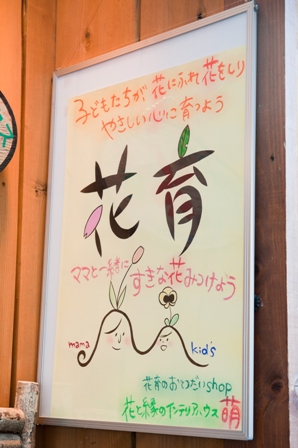 子どもたちが、花にふれ花をしり
やさしい心に育つよう
花育
ママと一緒に
すきな花みつけよう
mama
kid's
花育のおてつだいshop
花と緑のインテリアハウス 萌